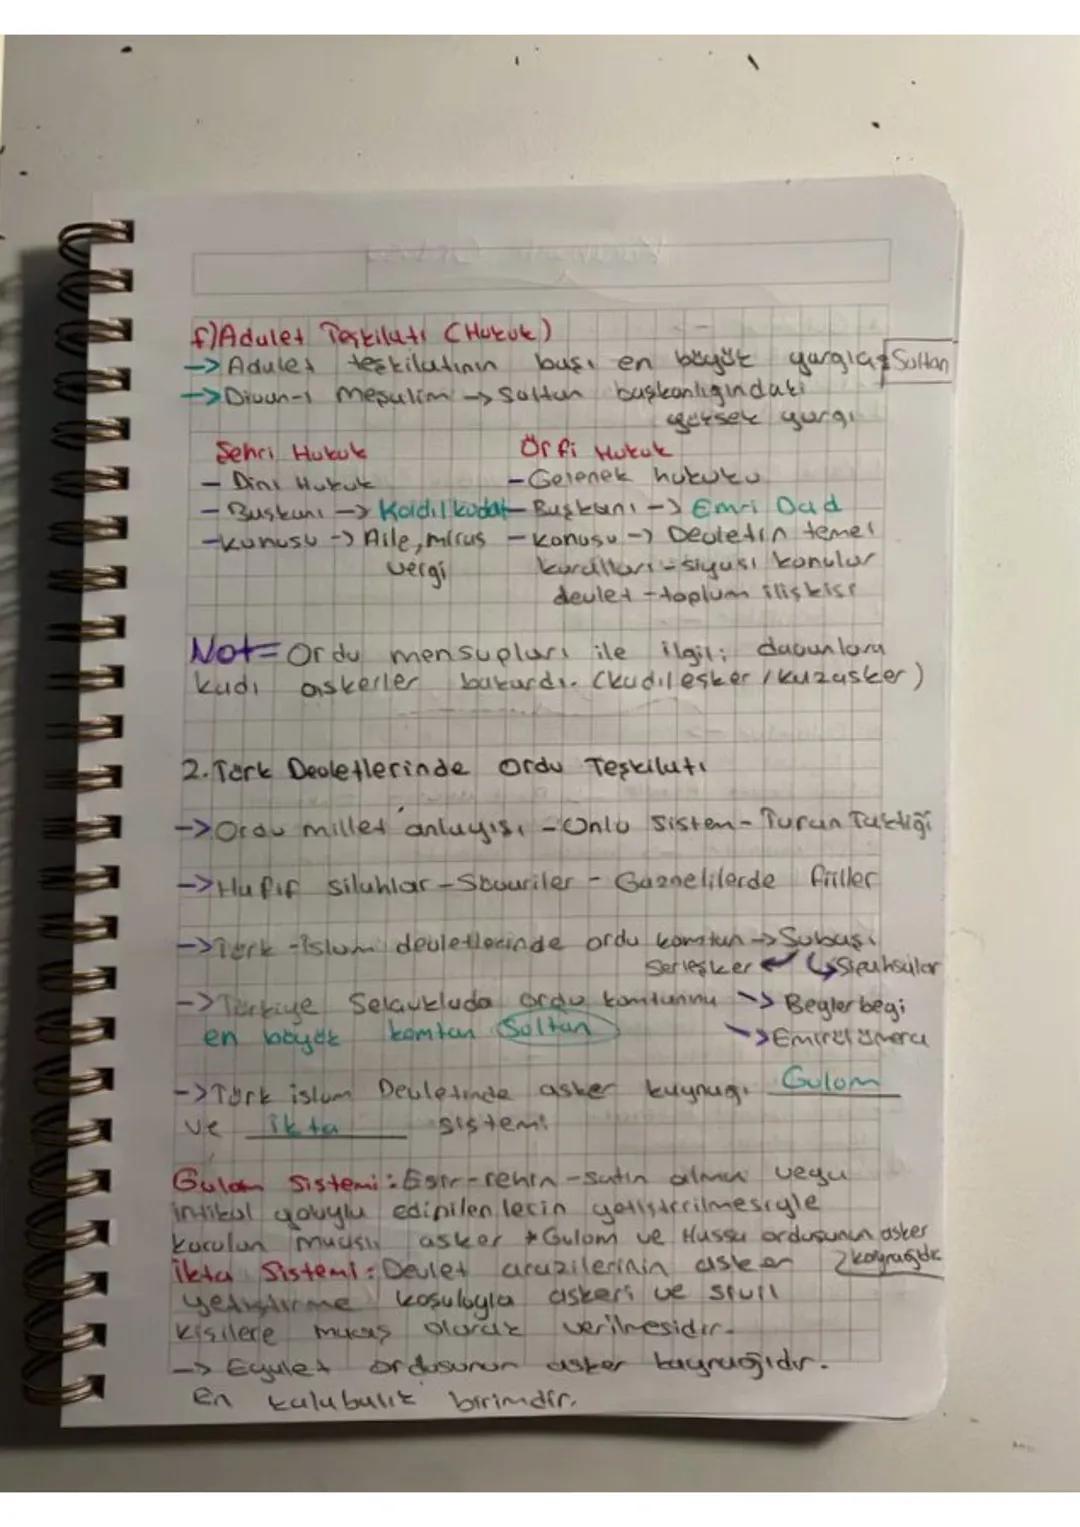 f) Adalet Teşkilatı (Hukuk)
-> Adalet teşkilatının başı en büyük yargıç Sultan
-> Divan-ı Mezalim -> Sultan başkanlığındaki
yüksek yargı
Şehri Hukuk
- Dini Hukuk
- Başkanı -> Kadılkudat
- konusu -> Aile, miras
vergi
Örfi Hukuk
- Gelenek hukuku
- Başkanı -> Emri Dad
- konusu -> Devletin temel
kuralları - siyasi konular
devlet - toplum ilişkisi
Not = Ordu mensupları ile ilgili davunlara
kadı askerler bakardı. (kadıleşker / kazasker)
2. Türk Devletlerinde Ordu Teşkilatı
-> Ordu millet anlayışı - Onlu Sistem - Turan Taktiği
-> Hafif silahlar - Süvariler - Gaznelilerde filler
-> Türk - İslam devletlerinde ordu komtan -> Subaşı
Serleşker Sipahsalar
-> Türkiye Selçukluda ordu komtanını -> Beglerbegi
en büyük komtan Sultan -> Emirül Ümera
-> Türk islam Devletinde asker kaynağı Gulam
ve ikta sistemi
Gulam Sistemi: Esir - rehin - satın alma veya
intikal yoluyla edinilenlerin yetiştirilmesiyle
kurulan maaşlı asker * Gulam ve Hassa ordusunun asker
kaynağıdır
İkta Sistemi: Devlet arazilerinin asker
yetiştirme koşuluyla askeri ve sivil
kişilere maaş olarak verilmesidir.
-> Eyalet ordusunun asker kaynağıdır.
en kalabalık birimdir.